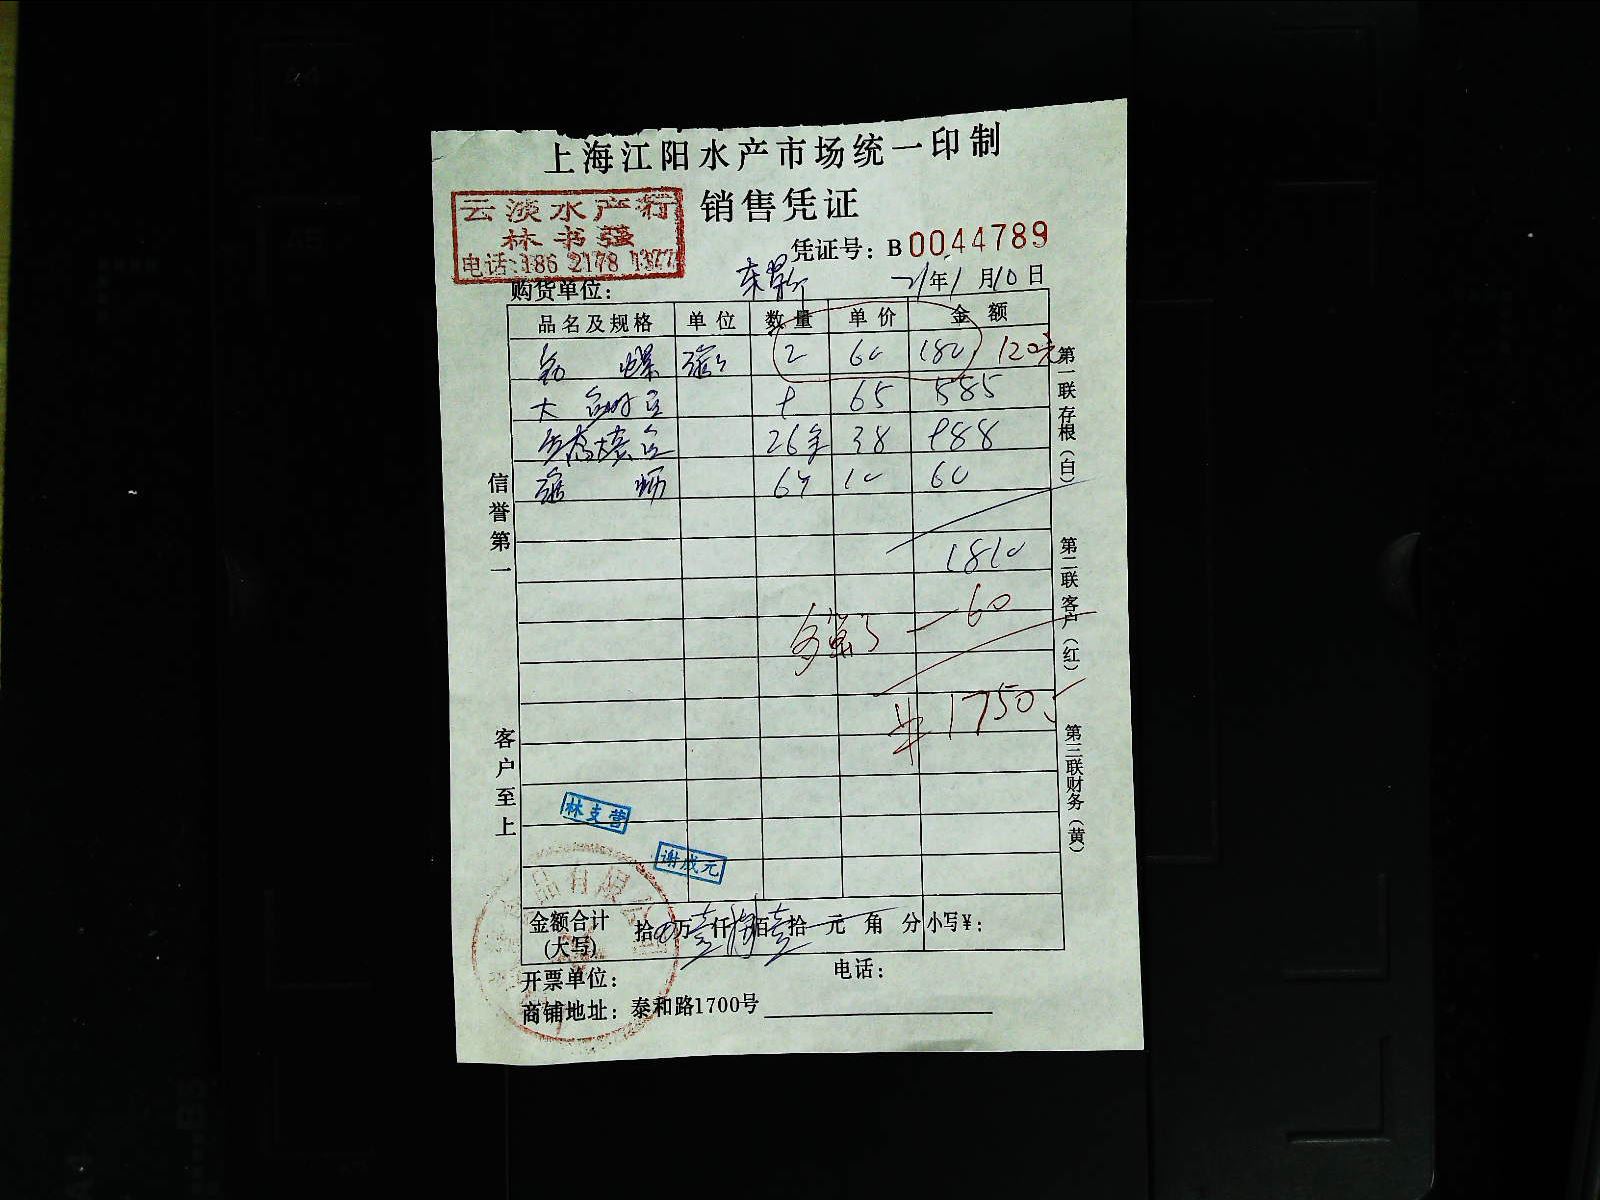 上海江阳水产市场统一印制
销售凭证
云淡水产行
林书强
电话:186 2178 1377
凭证号：B0044789
购货单位：
21年1月10日
品名及规格 单位 数量 单价 金额
螺 2 60 180 120元
大 65 585
26 38 988
6 10 60
1810
多算了 -60
1750
信誉第一
客户至上
第一联存根（白）
第二联客户（红）
第三联财务（黄）
林支营
谢成元
品有限公司
金额合计（大写） 拾 万壹仟捌佰壹拾 元 角 分 小写¥：
开票单位： 电话：
商铺地址：泰和路1700号